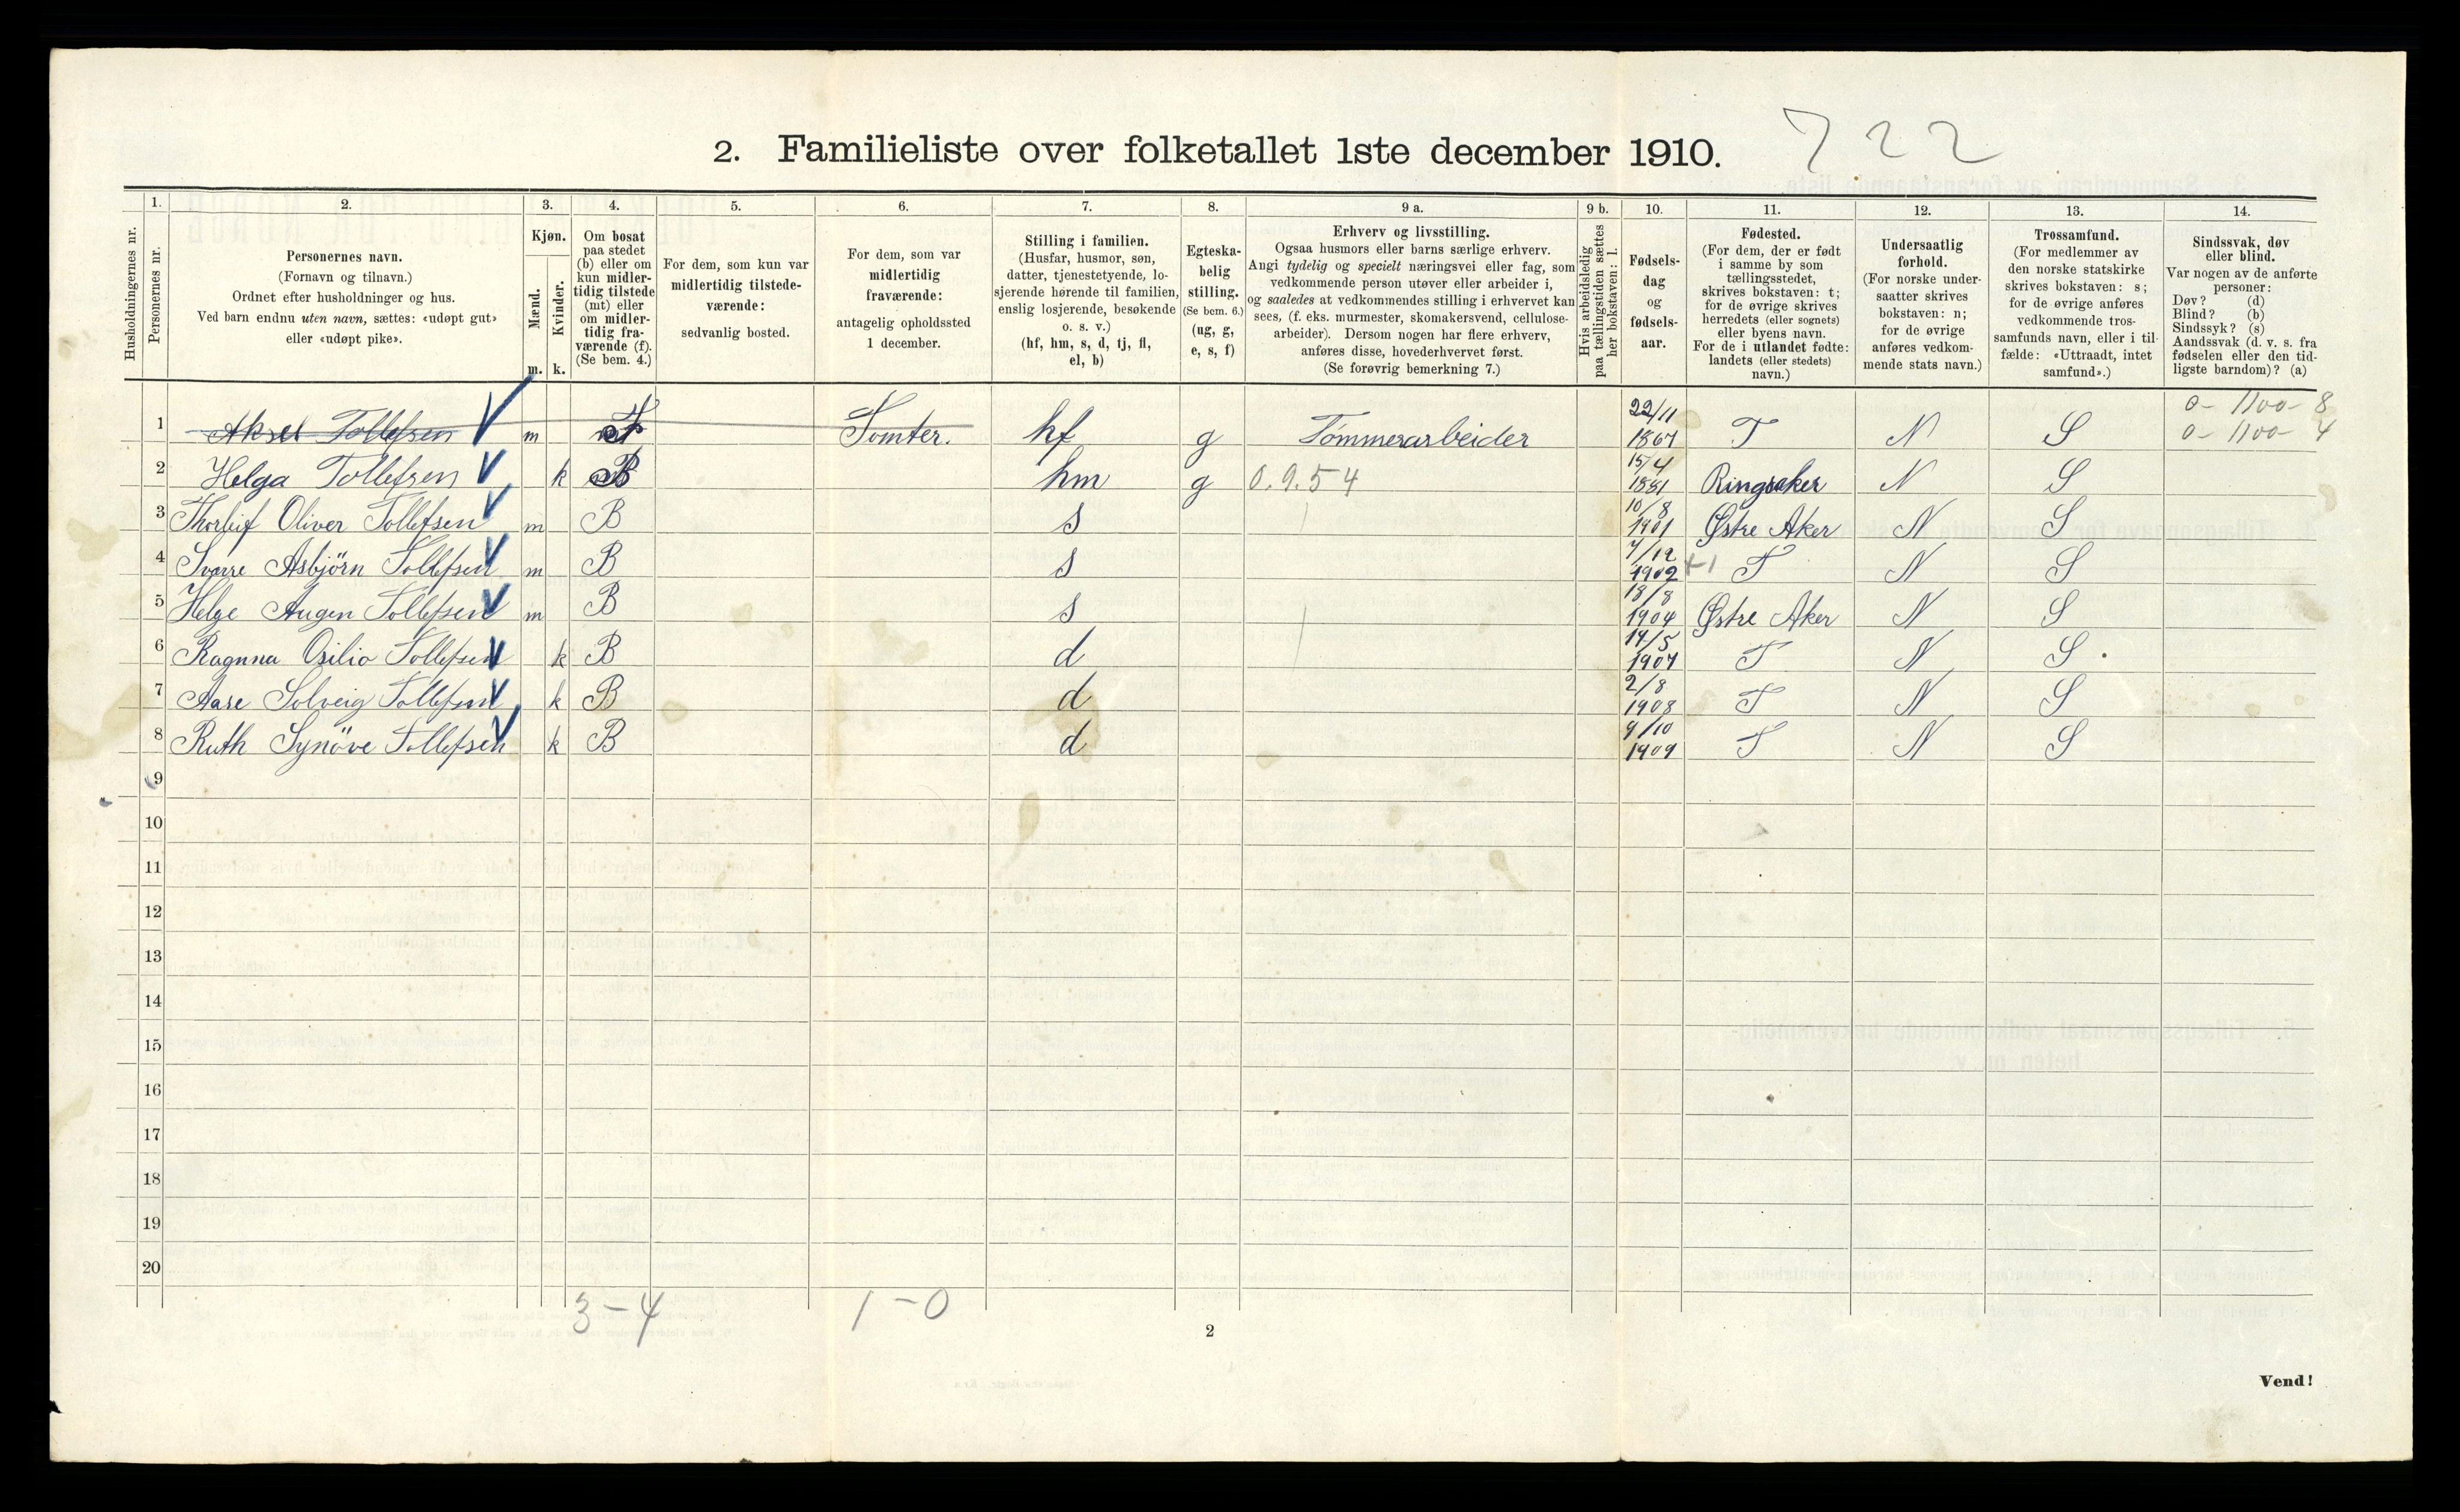 2. Familieliste over folketallet 1ste december 1910. 722
Husholdningernes nr.
1.
Personernes nr.
2.
Personernes navn.
(Fornavn og tilnavn.)
Ordnet efter husholdninger og hus.
Ved barn endnu uten navn, sættes: «udøpt gut»
eller «udøpt pike».
3.
Kjøn.
Mænd.
Kvinder.
m. k.
4.
Om bosat
paa stedet
(b) eller om
kun midler-
tidig tilstede
(mt) eller
om midler-
tidig fra-
værende (f).
(Se bem. 4.)
5.
For dem, som kun var
midlertidig tilstede-
værende:
sedvanlig bosted.
6.
For dem, som var
midlertidig
fraværende:
antagelig opholdssted
1 december.
7.
Stilling i familien.
(Husfar, husmor, søn,
datter, tjenestetyende, lo-
sjerende hørende til familien,
enslig losjerende, besøkende
o. s. v.)
(hf, hm, s, d, tj, fl,
el, b)
8.
Egteska-
belig
stilling.
(Se bem. 6.)
(ug, g,
e, s, f)
9 a.
Erhverv og livsstilling.
Ogsaa husmors eller barns særlige erhverv.
Angi tydelig og specielt næringsvei eller fag, som
vedkommende person utøver eller arbeider i,
og saaledes at vedkommendes stilling i erhvervet kan
sees, (f. eks. murmester, skomakersvend, cellulose-
arbeider). Dersom nogen har flere erhverv,
anføres disse, hovederhvervet først.
(Se forøvrig bemerkning 7.)
9 b.
Hvis arbeidsledig
paa tællingstiden sættes
her bokstaven: l.
10.
Fødsels-
dag
og
fødsels-
aar.
11.
Fødested.
(For dem, der er født
i samme by som
tællingsstedet,
skrives bokstaven: t;
for de øvrige skrives
herredets (eller sognets)
eller byens navn.
For de i utlandet fødte:
landets (eller stedets)
navn.)
12.
Undersaatlig
forhold.
(For norske under-
saatter skrives
bokstaven: n;
for de øvrige
anføres vedkom-
mende stats navn.)
13.
Trossamfund.
(For medlemmer av
den norske statskirke
skrives bokstaven: s;
for de øvrige anføres
vedkommende tros-
samfunds navn, eller i til-
fælde: «Uttraadt, intet
samfund».)
14.
Sindssvak, døv
eller blind.
Var nogen av de anførte
personer:
Døv? (d)
Blind? (b)
Sindssyk? (s)
Aandssvak (d. v. s. fra
fødselen eller den tid-
ligste barndom)? (a)
1 Aksel Tollefsen m f Tomter. hf g Tømmerarbeider 22/11 1867 T N S 0-1100-8
0-1100-4
2 Helga Tollefsen k B hm g 0.9.54 15/4 1881 Ringsaker N S
3 Thorleif Oliver Tollefsen m B s 10/8 1901 Østre Aker N S
4 Sverre Asbjörn Tollefsen m B s 7/12 1902 +1 T N S
5 Helge Augen Tollefsen m B s 18/8 1904 Østre Aker N S
6 Ragnna Osilio Tollefsen k B d 14/5 1907 T N S
7 Aase Solveig Tollefsen k B d 2/8 1908 T N S
8 Ruth Synöve Tollefsen k B d 9/10 1909 T N S
9
10
11
12
13
14
15
16
17
18
19
20
3-4 1-0
2
Vend!